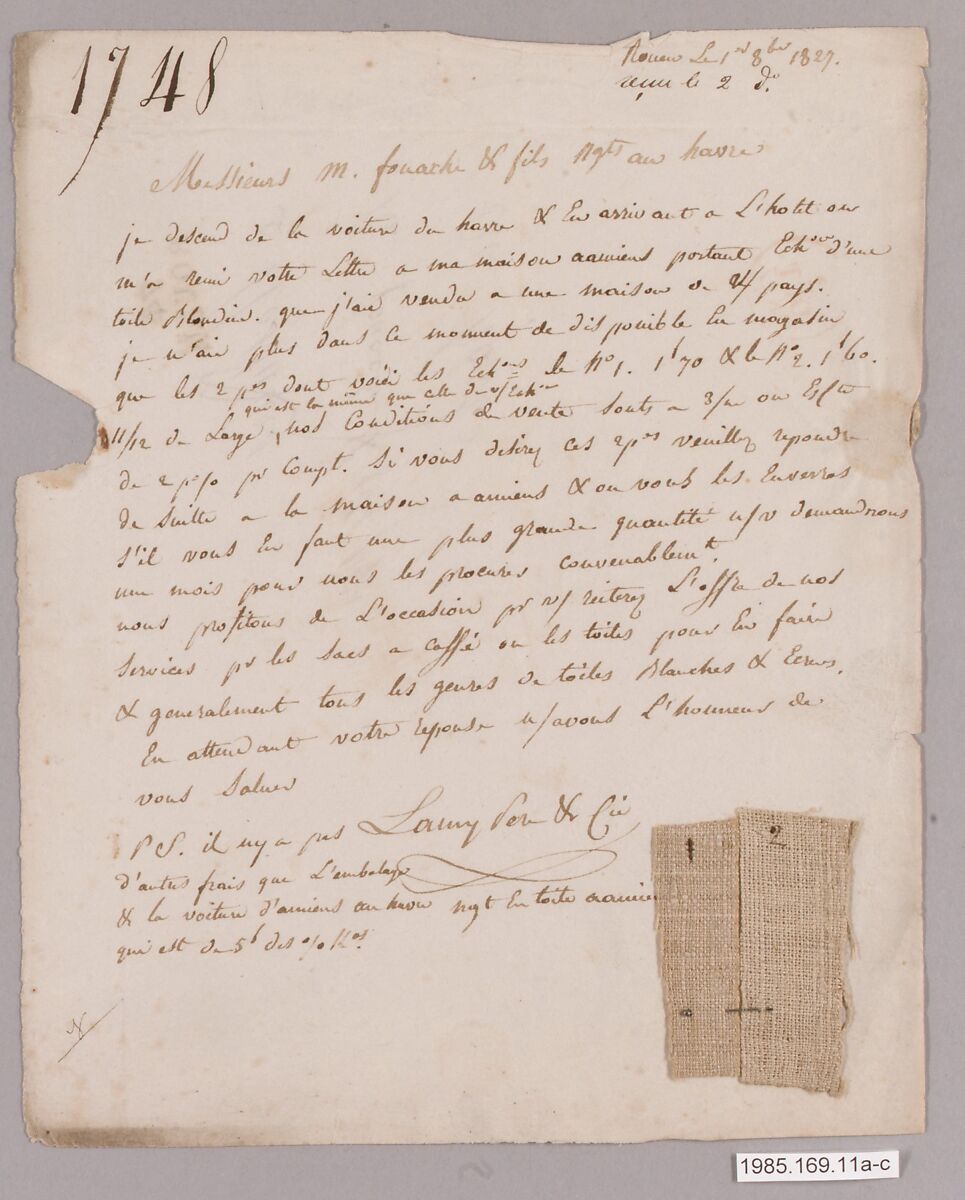 1748
Rouen Le 1er 8bre 1827.
reçu le 2 do.
Messieurs M. fouache & fils Ngts au havre
je descend de la voiture du havre & En arrivant a L'hotel on
m'a remi votre Lettre a ma maison aamiens portant Echon d'une
toile Blondine. que j'ai vendu a une maison de pays.
je n'ai plus dans ce moment de disponible En magasin
que les 2 pes dont voici les Echons le No 1. 1f 70 & le No 2. 1f 60.
qui est la même que celle de v/ Echon
11/12 de Large, nos Conditions de vente sonts a 3/m ou Escte
de 2 p % pr Compt. Si vous desirez ces 2 pes veuillez repondre
de Suitte a la maison a amiens & on vous les Enverras
s'il vous En faut une plus grande quantité n/v demandrons
un mois pour nous les procurer convenablemt.
nous profitons de L'occasion pr v/ reiterez L'offre de nos
Services pr les Sacs a caffé ou les toiles pour En faire
& generalement tous les genres de toiles Blanches & Ecrues.
En attendant votre reponse n/avons L'honneur de
vous Saluer
Lamy Pere & Cie
P S. il ny a pas
d'autres frais que L'embalage
& la voiture d'amiens au havre ngt En toile aamiens
qui est de 5f des % Kos.
1
2
1985.169.11a-c